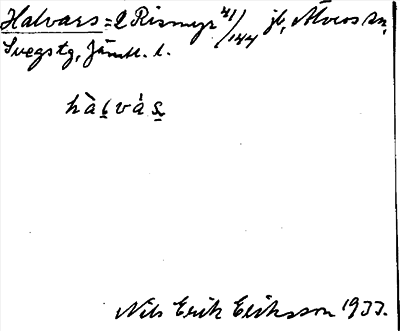 Halvars = 2 Rismyr 41/144 jb, Älvros sn,
Svegs tg, Jämtl. l.
hàlvás
Nils Erik Eriksson 1933.